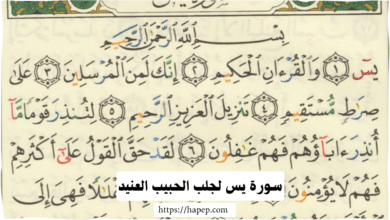 بِسْمِ اللَّهِ الرَّحْمَٰنِ الرَّحِيمِ
يسٓ ١ وَالْقُرْءَانِ الْحَكِيمِ ٢ إِنَّكَ لَمِنَ الْمُرْسَلِينَ ٣ عَلَىٰ
صِرَٰطٍ مُّسْتَقِيمٍ ٤ تَنزِيلَ الْعَزِيزِ الرَّحِيمِ ٥ لِتُنذِرَ قَوْمًا مَّآ
أُنذِرَ ءَابَآؤُهُمْ فَهُمْ غَٰفِلُونَ ٦ لَقَدْ حَقَّ الْقَوْلُ عَلَىٰٓ أَكْثَرِهِمْ
فَهُمْ لَا يُؤْمِنُونَ فَهِىَ إِلَى
سورة يس لجلب الحبيب العنيد
https://hapep.com